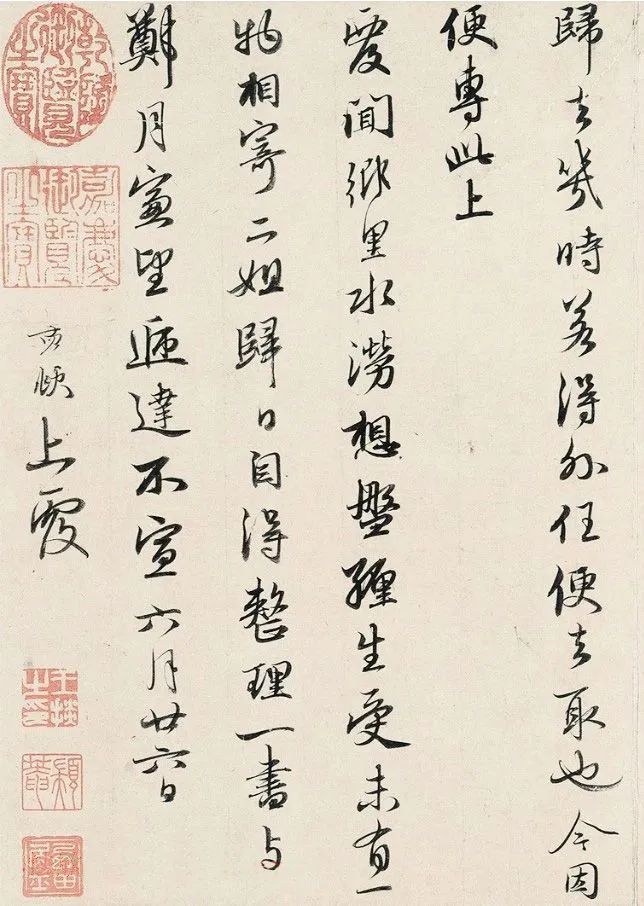 歸去幾時若得外任便去取也今因
便專此上
覆聞鄉里水澇想盤纏生受未有一
物相寄二姐歸日自得整理一書与
鄭月窗望遞達不宣六月廿六日
孟頫上覆
乾隆御覽之寶
嘉慶御覽之寶